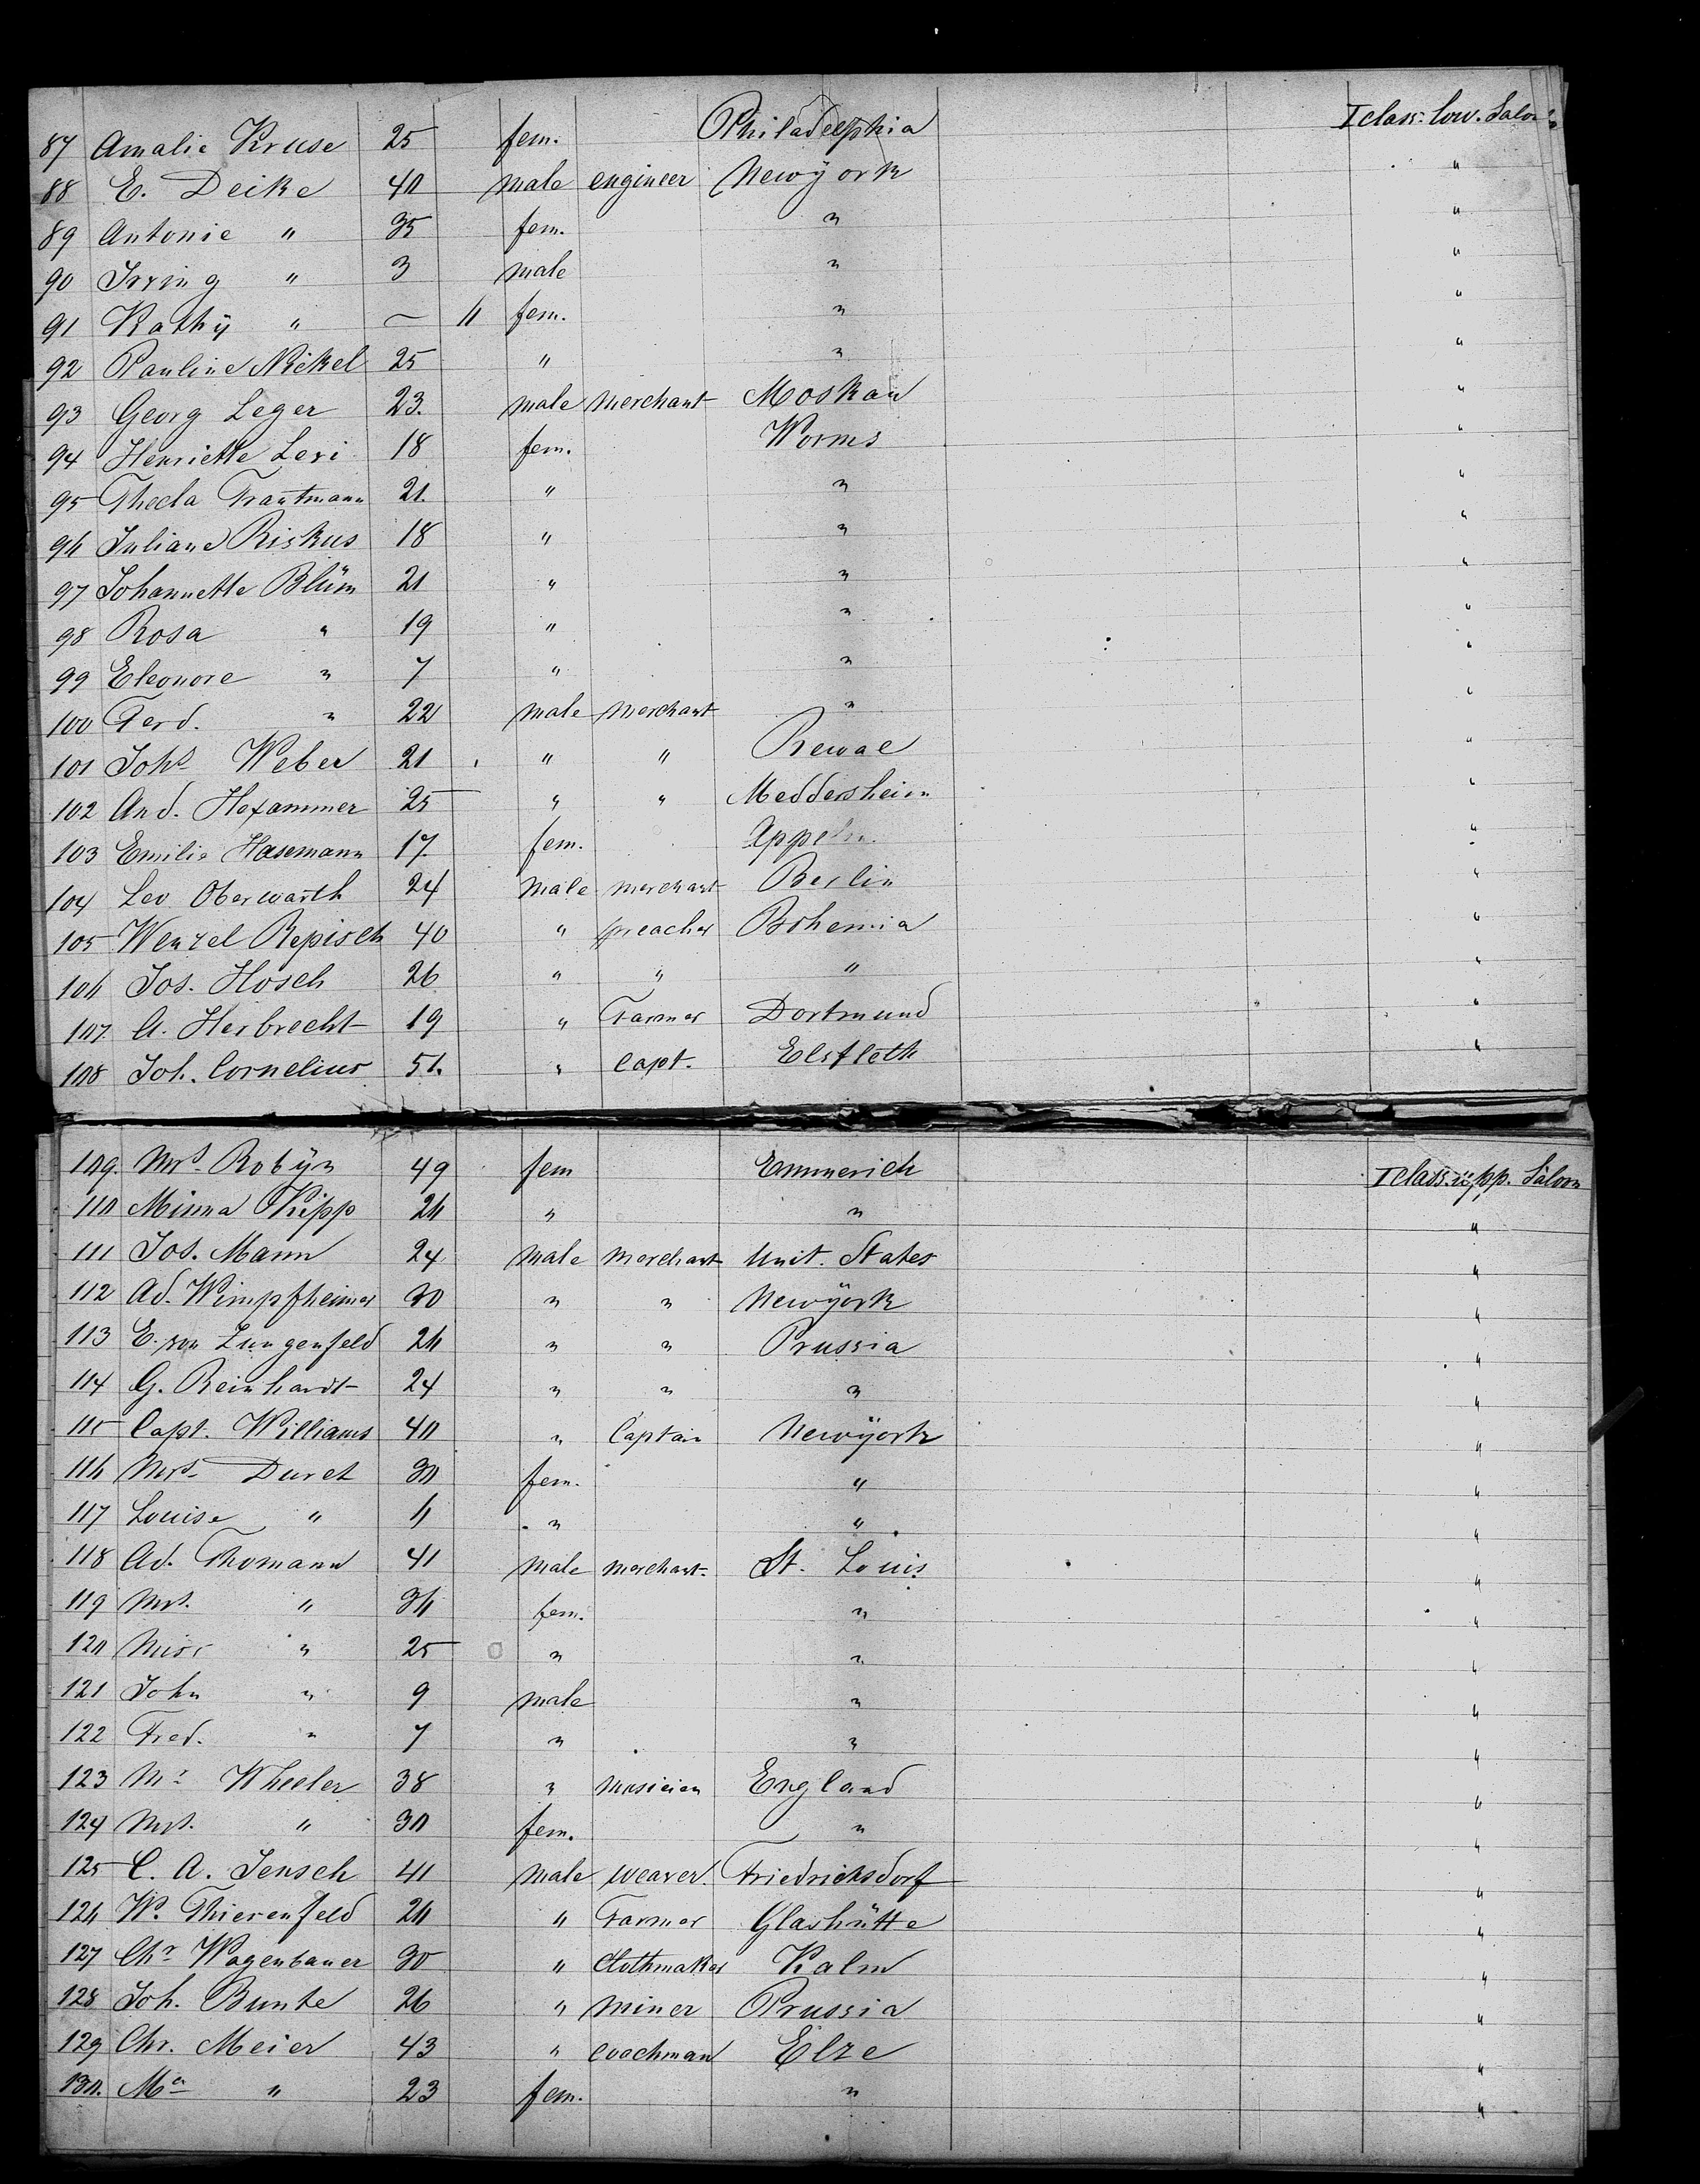 87 Amalie Kruse 25 fem. Philadelphia I class. low. Salon
88 E. Deike 40 male engineer Newÿork "
89 Antonie " 35 fem. " "
90 Irving " 3 male " "
91 Kathÿ " — 11 fem. " "
92 Pauline Nickel 25 " " "
93 Georg Leger 23. male merchant Moskau "
94 Henriette Levi 18 fem. Worms "
95 Thecla Trautmann 21. " " "
96 Juliane Riskus 18 " " "
97 Johannette Blüm 21 " " "
98 Rosa " 19 " " "
99 Eleonore " 7 " " "
100 Ferd. " 22 male merchant " "
101 Johs Weber 21 " " Rewal "
102 And. Hexammer 25 " " Meddersheim "
103 Emilie Hasemann 17. fem. "
104 Leo Oberwarth 24 male merchant Berlin "
105 Wenzel Repisch 40 " preacher Bohemia "
106 Jos. Hosch 26 " " " "
107. A. Herbrecht 19 " Farmer Dortmund "
108 Joh. Cornelius 51. " Capt. Elsfleth "
109. Mrs. Robÿn 49 fem Emmerich I class. upp. Salon
110 Minna Kipp 20 " " "
111 Jos. Mann 24 male merchant Unit. States "
112 Ad. Wimpfheimer 30 " " Newÿork "
113 E. von Lungenfeld 26 " " Prussia "
114 G. Reinhardt 24 " " " "
115 Capt. Williams 40 " Captain Newÿork "
116 Mrs. Duret 30 fem. " "
117 Louise " 6 " " "
118 Ad. Thomann 41 male merchant. St. Louis "
119 Mrs. " 36 fem. " "
120 Miss " 25 " " "
121 John " 9 male " "
122 Fred. " 7 " " "
123 Mr Wheeler 38 " musician England "
124 Mrs. " 30 fem. " "
125 C. A. Jensch 41 male weaver. Friedrichsdorf "
126 W. Thierenfeld 20 " Farmer Glashütte "
127 Chr Wagenbauer 30 " Clothmaker Kalm "
128 Joh. Bunte 26 " miner Prussia "
129 Chr. Meier 43 " coachman Elze "
130. Ma " 23 fem. " "